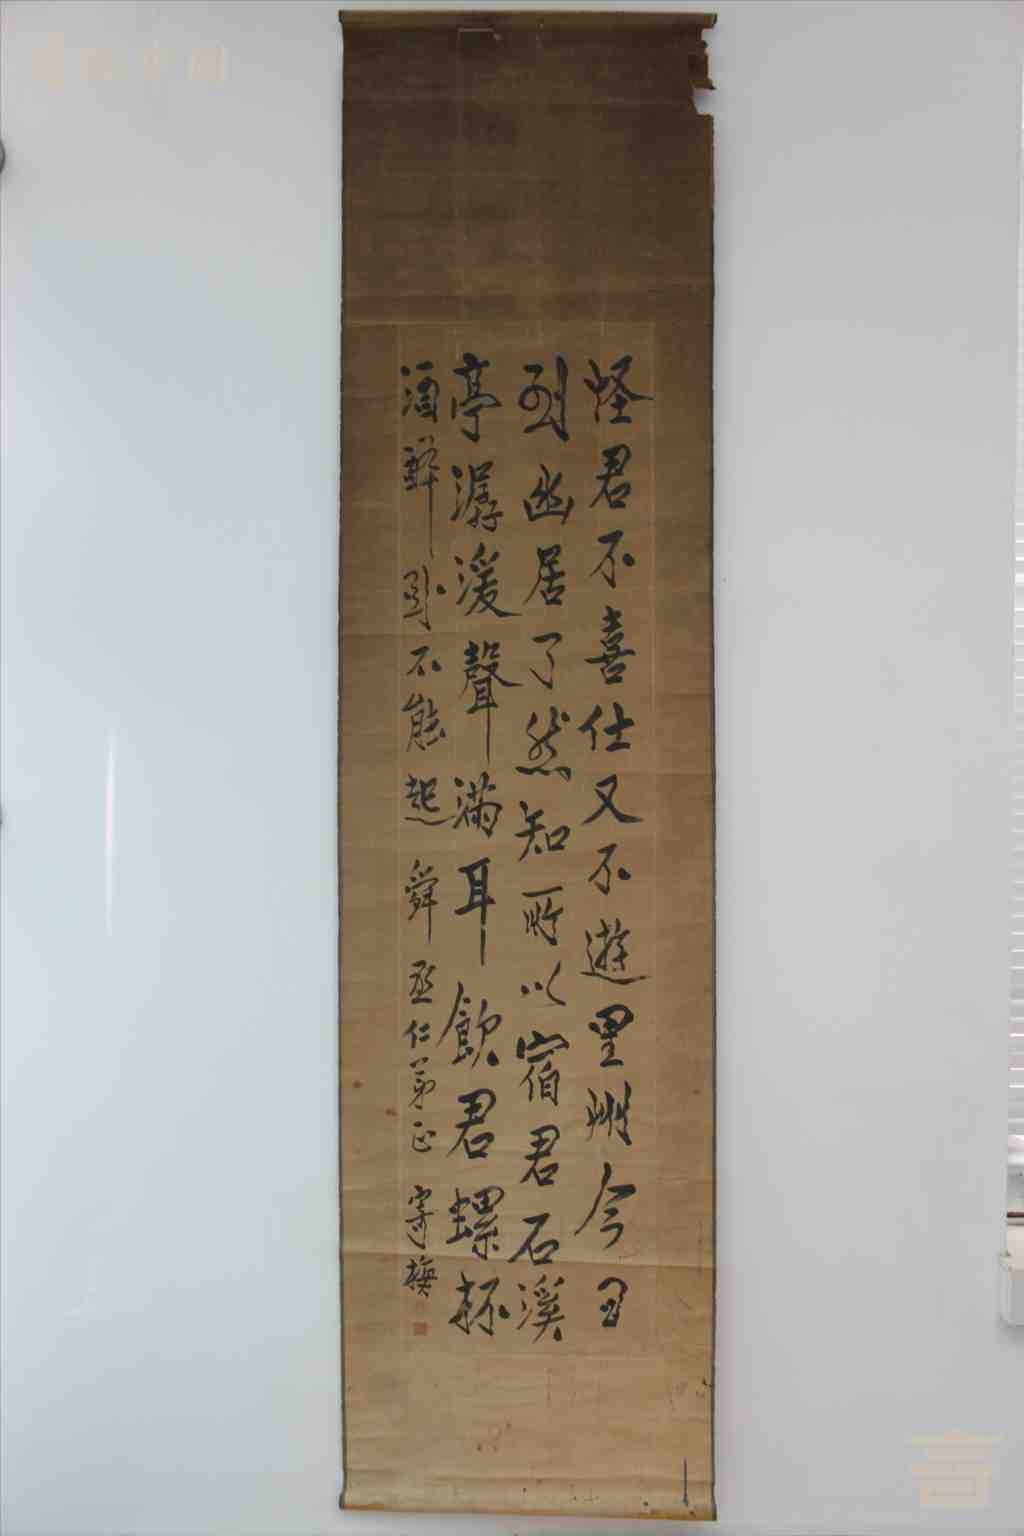 怪君不喜仕又不遊里州今日
到幽居了然知所以宿君石溪
亭潺湲聲滿耳飲君螺杯
酒醉臥不能起 舜丞仁弟正 寄